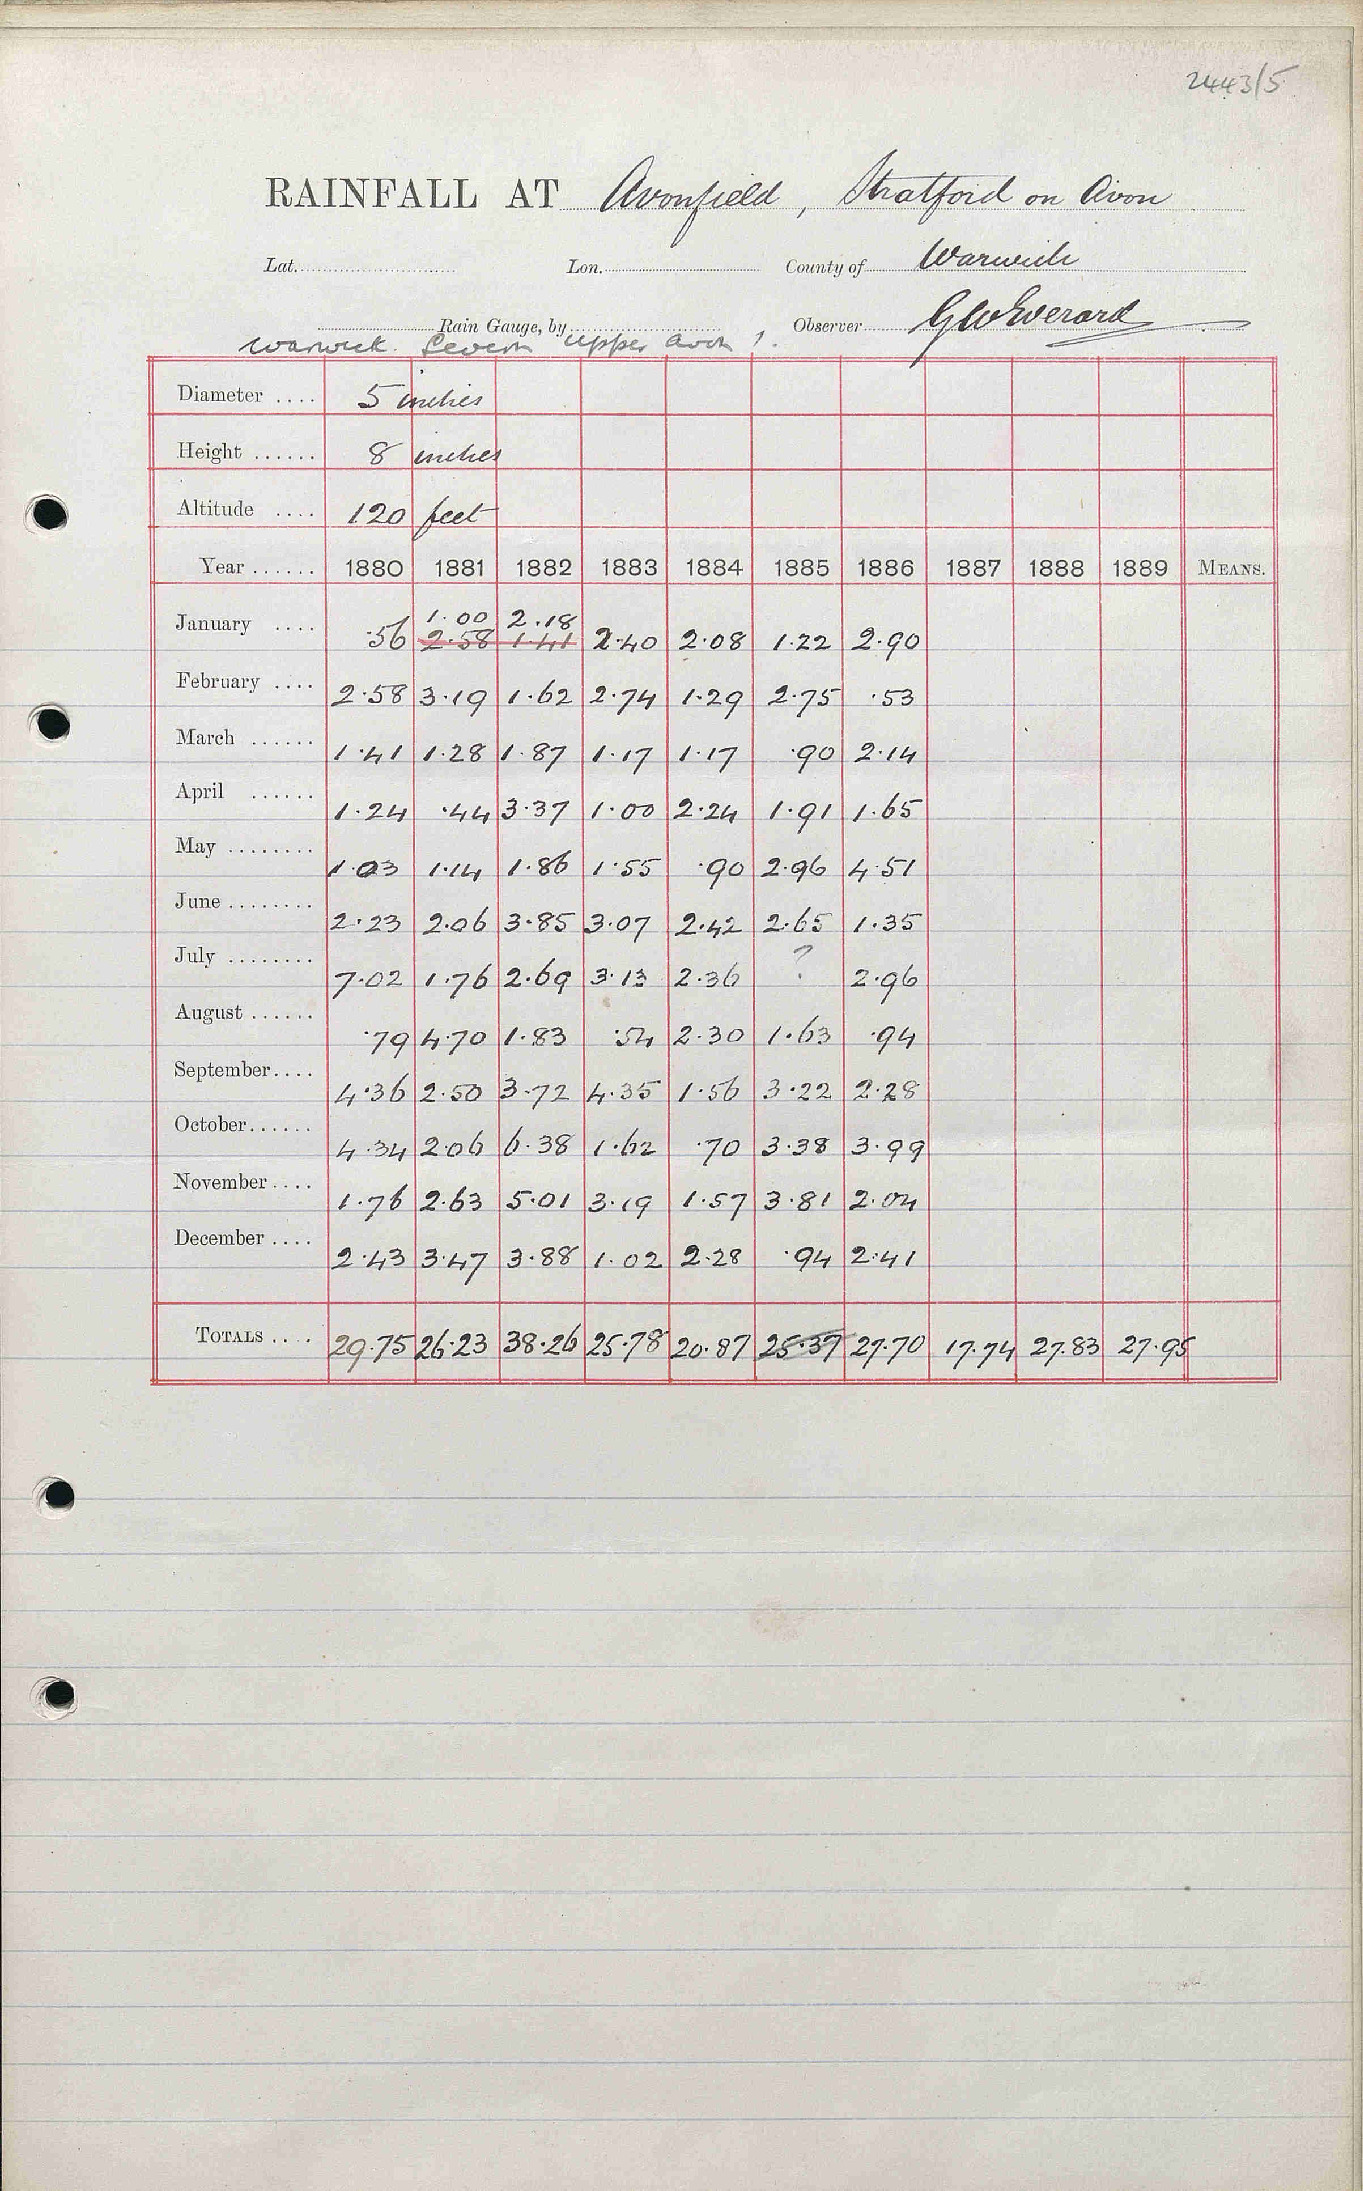 2443/5
RAINFALL AT Avonfield, Stratford on Avon
Lat. Lon. County of Warwick
Rain Gauge, by Observer G W Everard
Warwick. Severn Upper Avon 1.
Diameter .... 5 inches
Height ...... 8 inches
Altitude .... 120 feet
Year ...... 1880 1881 1882 1883 1884 1885 1886 1887 1888 1889 MEANS.
1.00 2.18
January .... .56 2.58 1.41 2.40 2.08 1.22 2.90
February .... 2.58 3.19 1.62 2.74 1.29 2.75 .53
March ...... 1.41 1.28 1.87 1.17 1.17 .90 2.14
April ...... 1.24 .44 3.37 1.00 2.24 1.91 1.65
May ........ 1.03 1.14 1.86 1.55 .90 2.96 4.51
June ........ 2.23 2.06 3.85 3.07 2.42 2.65 1.35
July ........ 7.02 1.76 2.69 3.13 2.36 ? 2.96
August ...... .79 4.70 1.83 .54 2.30 1.63 .94
September.... 4.36 2.50 3.72 4.35 1.56 3.22 2.28
October...... 4.34 2.06 6.38 1.62 .70 3.38 3.99
November.... 1.76 2.63 5.01 3.19 1.57 3.81 2.04
December .... 2.43 3.47 3.88 1.02 2.28 .94 2.41
TOTALS .... 29.75 26.23 38.26 25.78 20.87 25.37 27.70 17.74 27.83 27.95